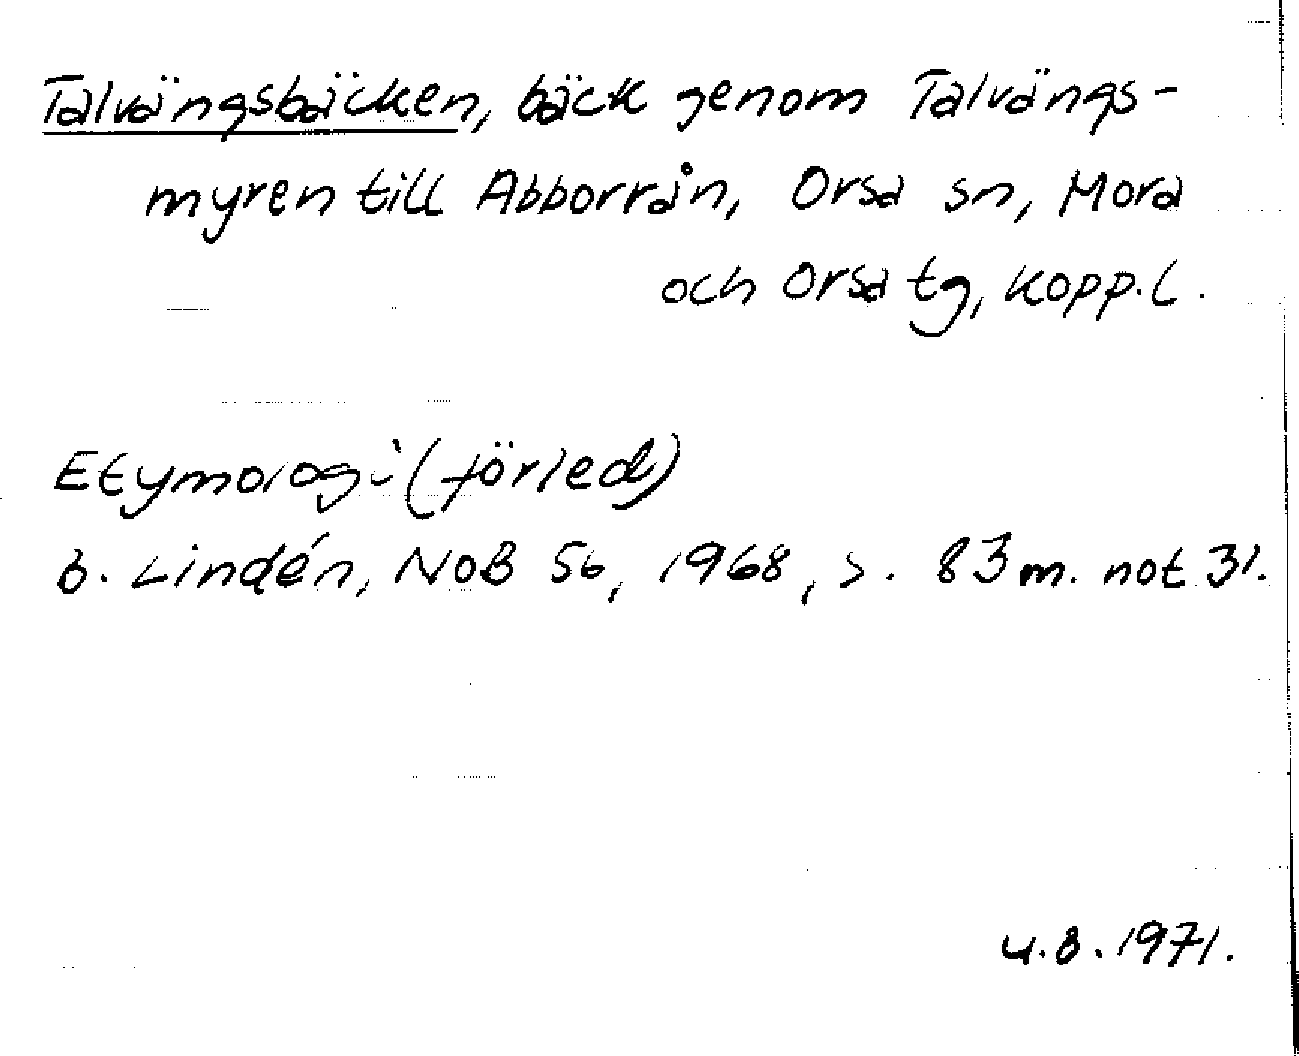 Talvängsbäcken, bäck genom Talvängs-
myren till Abborrån, Orsa sn, Mora
och Orsa tg, Kopp.l.
Etymologi (förled)
B. Lindén, NoB 56, 1968, s. 83 m. not 31.
U.B. 1971.